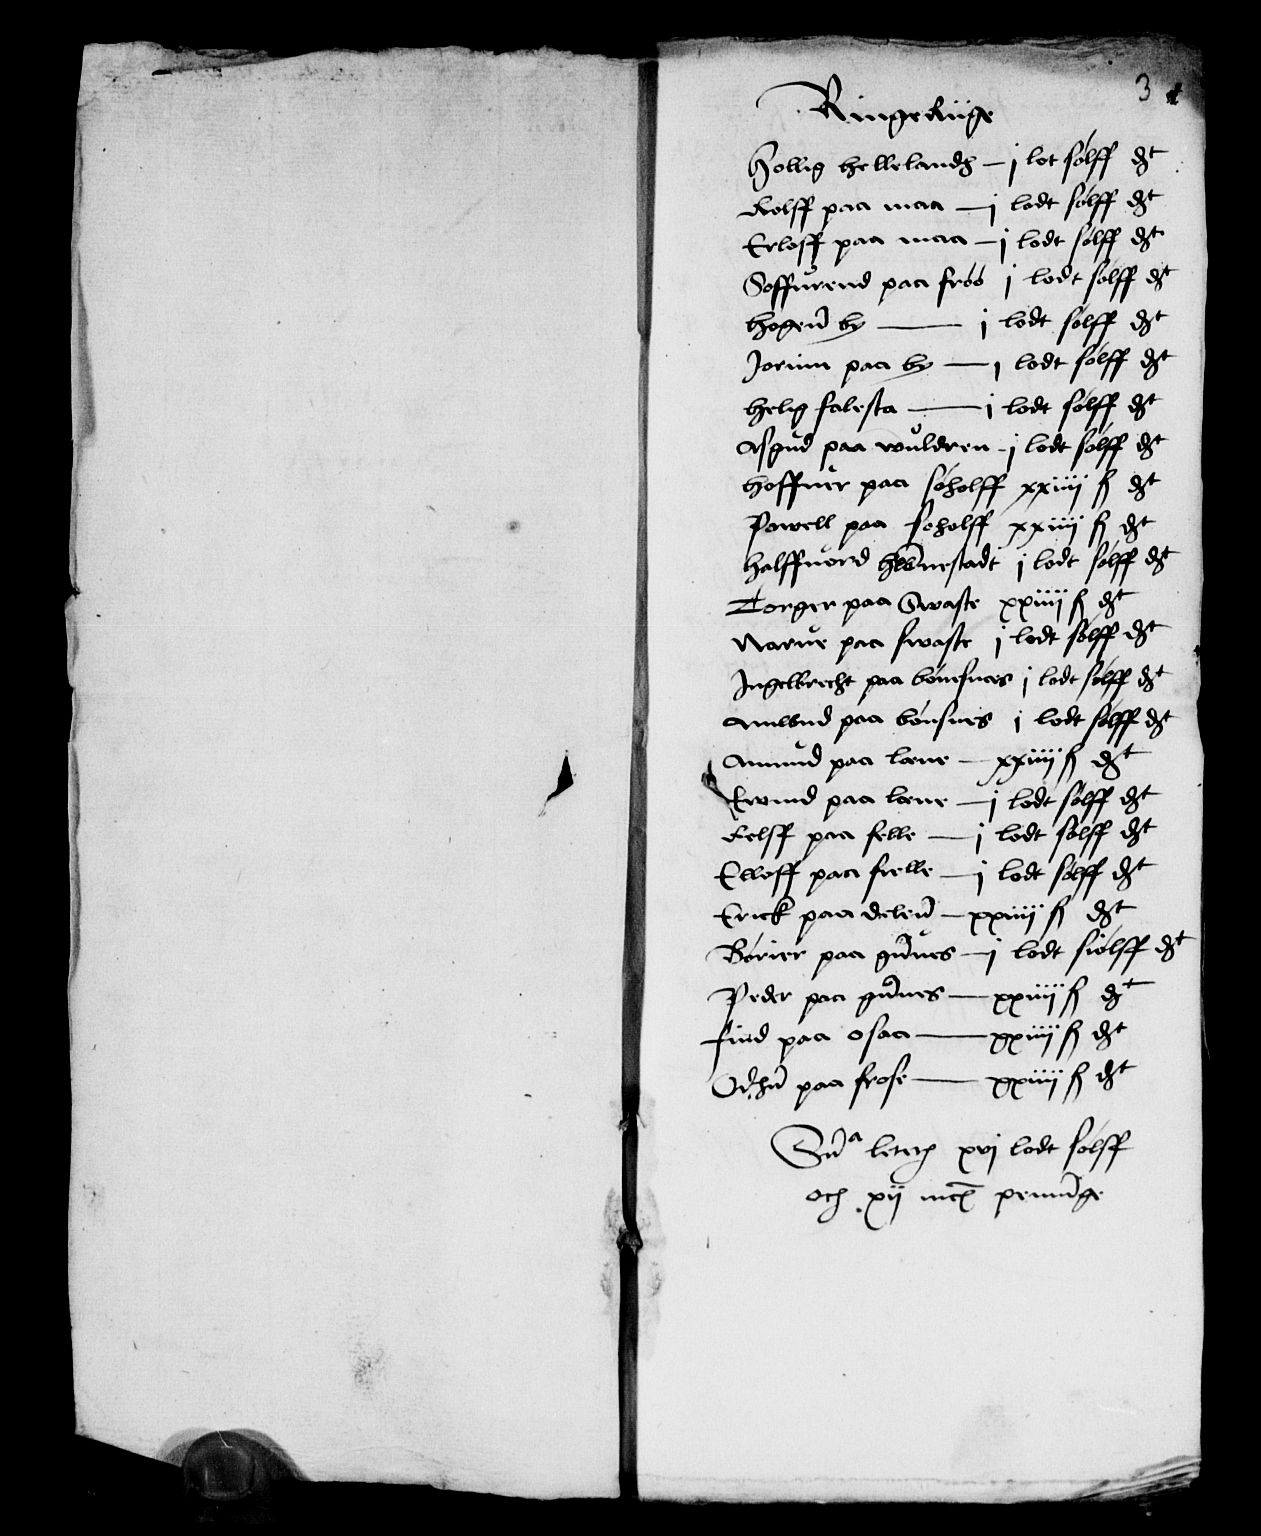 3
Ringeriige
Hollig hellelandh – j lot sølff dt
Rolff paa maa – j lodt sølff dt
Erloff paa maa – j lodt sølff dt
Soffurend paa fröö j lodt sølff dt
hogen by – j lodt sølff dt
Jorinn paa by – j lodt sølff dt
helig falesta – j lodt sølff dt
Asgud paa wuldren – j lodt sølff dt
hoffuer paa søholff xxiiij ß dt
Powell paa soholff xxiiij ß dt
halffuord j lodt sølff dt
Torger paa Swaste xxiiij ß dt
Narue paa swaste j lodt sølff dt
Ingelbrecht paa bønesnes j lodt sølff dt
Amund paa bønsnes j lodt sølff dt
Amund paa lene – xxiiij ß dt
Ewind paa lene – j lodt sølff dt
Rolff paa felle – j lodt sølff dt
Elloff paa frelle – j lodt sølff dt
Erick paa delen – xxiiij ß dt
Børier paa gunnes – j lodt siølff dt
Peder paa gunnes – xxiiij ß dt
find paa osaa – xxiiij ß dt
paa frose – xxiiij ß dt
Suma xvj lodt sølff
och xij mck penninge